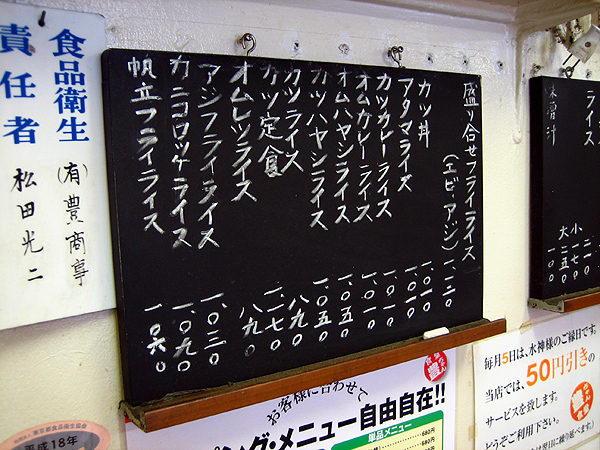 食品衛生
責任者
(有)豊商亭
松田光二
盛り合せフライライス
(エビ・アジ) 一、一二〇
カツ丼
アタマライス
カツカレーライス
オムカレーライス
オムハヤシライス 一、〇五〇
カツハヤシライス 一、〇五〇
カツライス 八九〇
カツ定食
オムレツライス 八九〇
アジフライライス 一、〇三〇
カニコロッケライス 一、〇九〇
帆立フライライス 一、〇六〇
ライス
味噌汁 一〇〇
大 小
お客様に合わせて
ング・メニュー自由自在!!
単品メニュー
毎月5日は、水神様のご縁日です。
当店では、50円引きの
サービスを致します。
どうぞご利用下さい。
平成18年